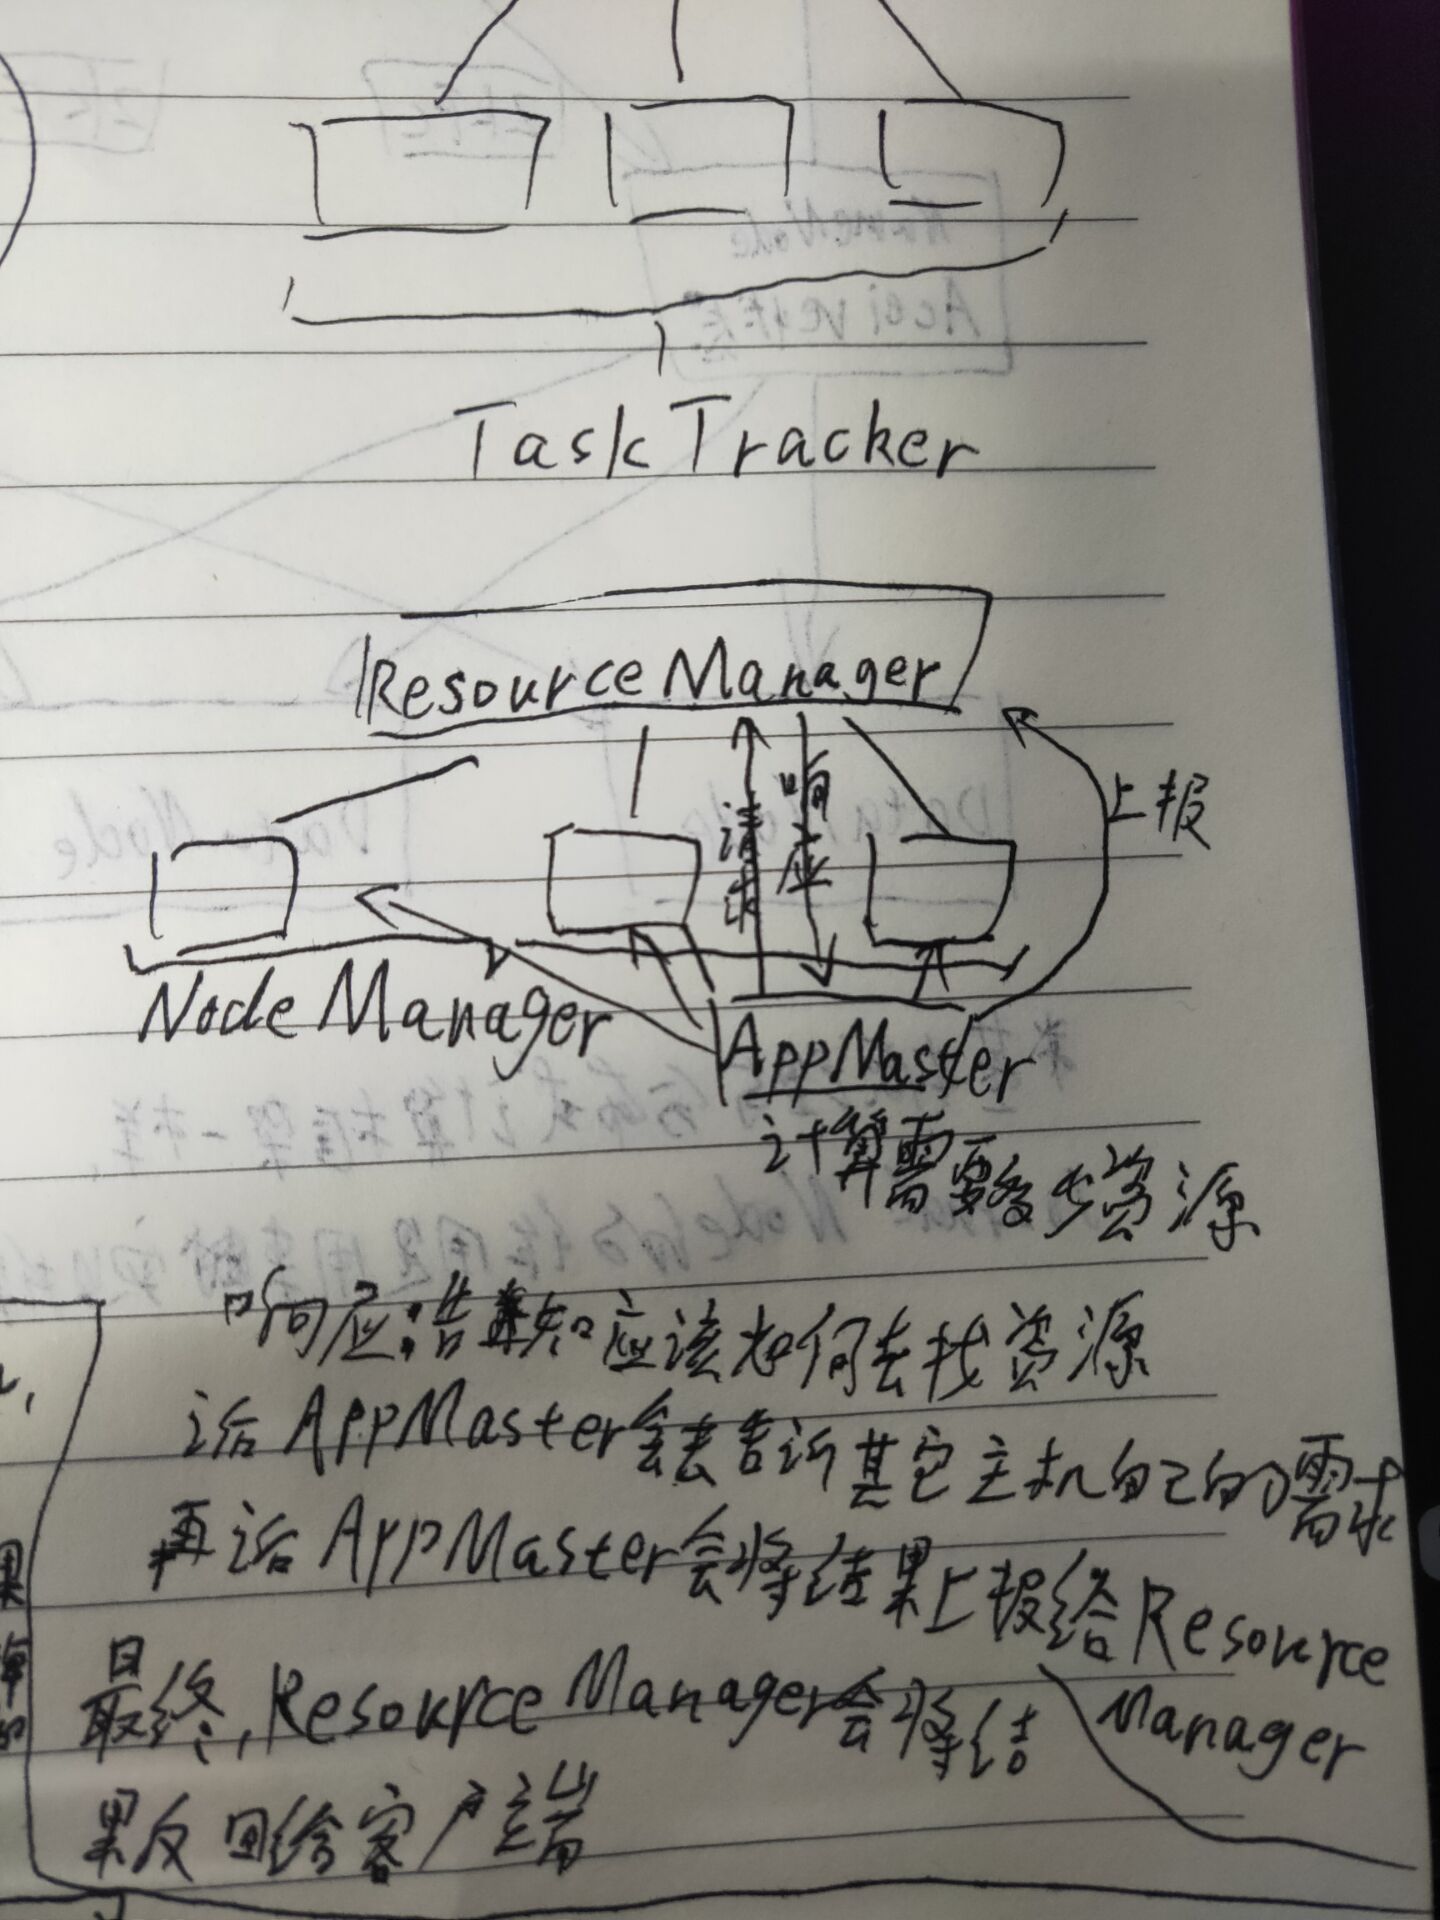 Task Tracker
Resource Manager
请求
响应
上报
Node Manager
AppMaster
计算需要多少资源
响应:告知应该如何去找资源
后 AppMaster会去告诉其它主机自己的需求
再 AppMaster会将结果上报给Resource
Manager
最终,Resource Manager会将结
果反回给客户端